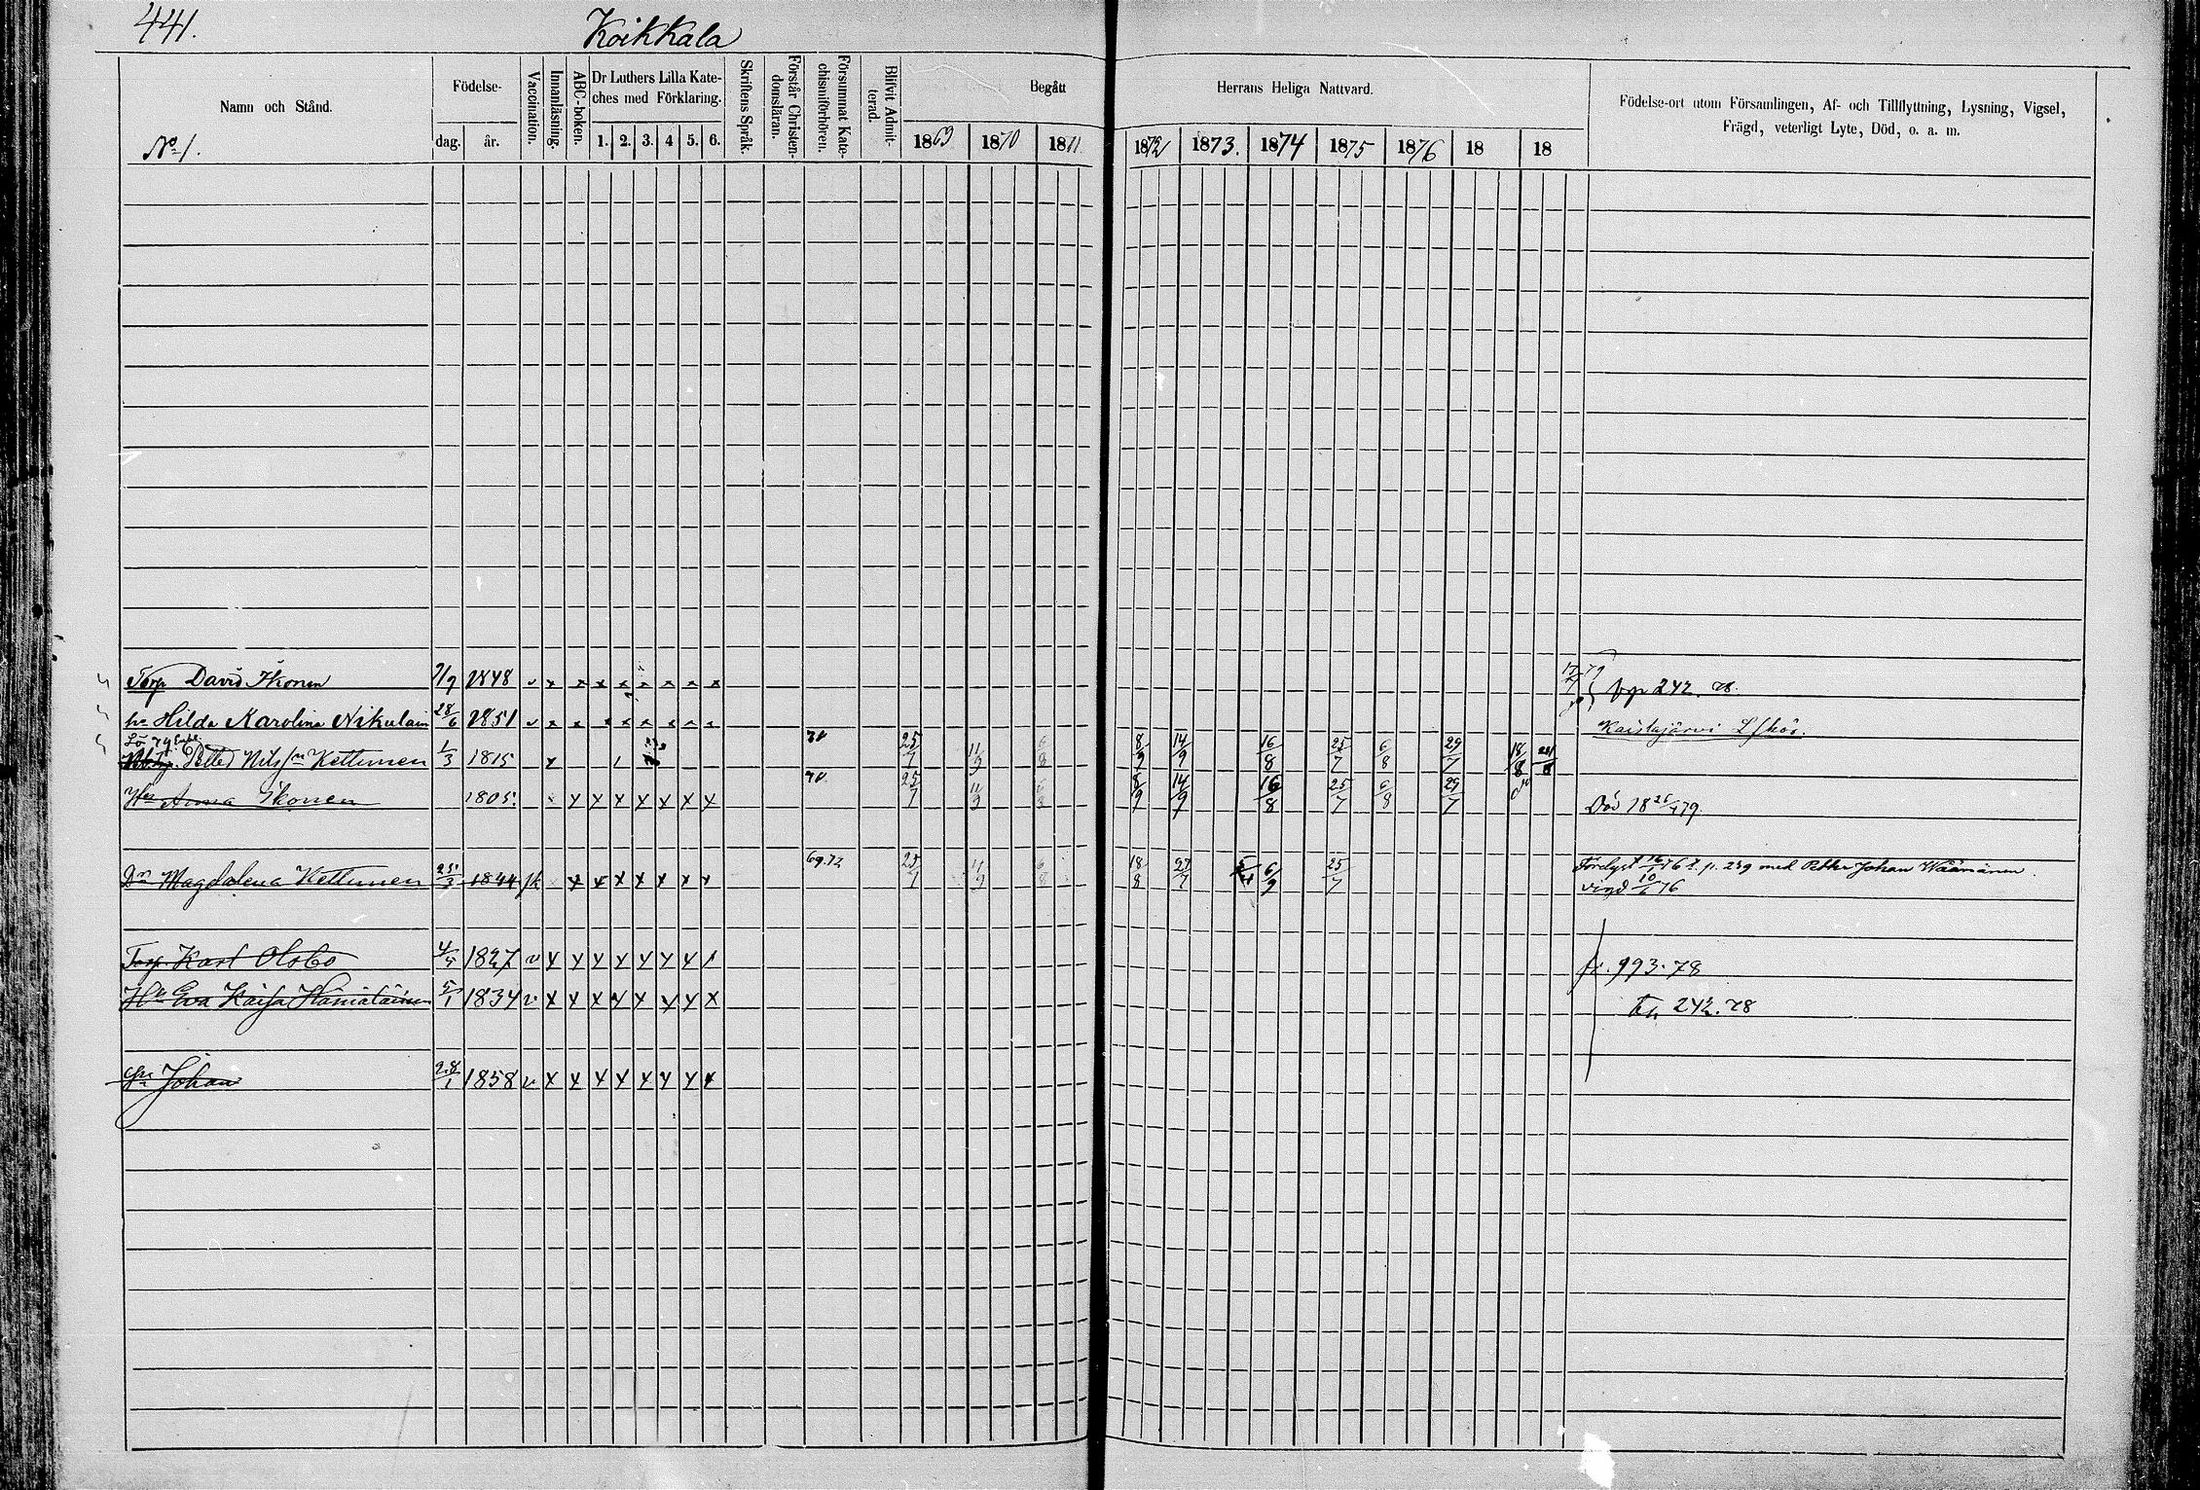 441.
Koikkala
Namn och Stånd.
No 1.
Födelse-
dag.
år.
Vaccination.
Innanläsning.
ABC-boken.
Dr Luthers Lilla Kate-
ches med Förklaring.
1. 2. 3. 4 5. 6.
Skriftens Språk.
Förstår Christen-
domsläran.
Försummat Kate-
chismiförhören.
Blifvit Admit-
terad.
Begått
Herrans Heliga Nattvard.
1869 1870 1871 1872 1873. 1874 1875 1876 18 18
Födelse-ort utom Församlingen, Af- och Tillflyttning, Lysning, Vigsel,
Frägd, veterligt Lyte, Död, o. a. m.
Torp David Ikonen 1848 242. 78.
hu Hilda Karolina Nikulain 28/6 1851 Kaislajärvi
Petter Nilsson Kettunen 1/3 1815 70 25/7 11/9 6/8 8/9 14/9 16/8 25/7 6/8 29/7 18/8
Hu Anna Ikonen 1805. x x x x x x x 70 25/7 11/9 6/8 8/9 14/9 16/8 25/7 6/8 29/7 Död 18 79.
Dr Magdalena Kettunen 1844 x x x x x x x 69.72 25/7 11/9 6/8 18/8 27/7 6/9 25/7 p. 239 med Petter Johan Wäänänen.
vigd 76
Torp. Karl Olsbo 4/5 1827 v x x x x x x x fr. 993. 78
Hu Eva Kaisa 5/1 1834 v x x x x x x x x 242. 78
Johan 28/1 1858 v x x x x x x x x